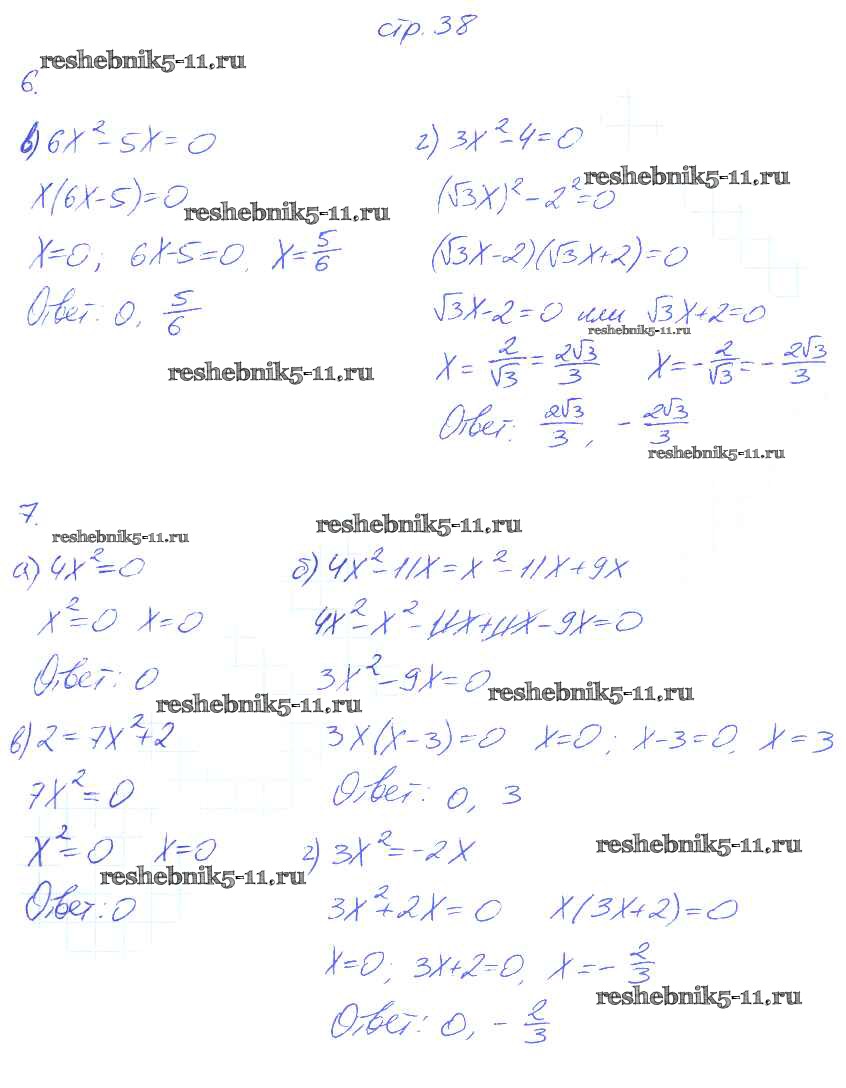 стр. 38
reshebnik5-11.ru
6.
в) 6x² - 5x = 0
x(6x-5) = 0
reshebnik5-11.ru
x=0; 6x-5=0, x=5/6
Ответ: 0, 5/6
reshebnik5-11.ru
г) 3x² - 4 = 0
reshebnik5-11.ru
(√3x)² - 2² = 0
(√3x-2)(√3x+2) = 0
√3x-2=0 или √3x+2=0
reshebnik5-11.ru
x = 2/√3 = 2√3/3 x = -2/√3 = -2√3/3
Ответ: 2√3/3, -2√3/3
reshebnik5-11.ru
7.
reshebnik5-11.ru
reshebnik5-11.ru
а) 4x² = 0
x² = 0 x = 0
Ответ: 0
reshebnik5-11.ru
б) 4x² - 11x = x² - 11x + 9x
4x² - x² - 11x + 11x - 9x = 0
3x² - 9x = 0
reshebnik5-11.ru
3x(x-3) = 0 x=0; x-3=0, x=3
Ответ: 0, 3
в) 2 = 7x² + 2
7x² = 0
x² = 0 x = 0
reshebnik5-11.ru
Ответ: 0
reshebnik5-11.ru
г) 3x² = -2x
3x² + 2x = 0 x(3x+2) = 0
x=0; 3x+2=0, x = -2/3
reshebnik5-11.ru
Ответ: 0, -2/3